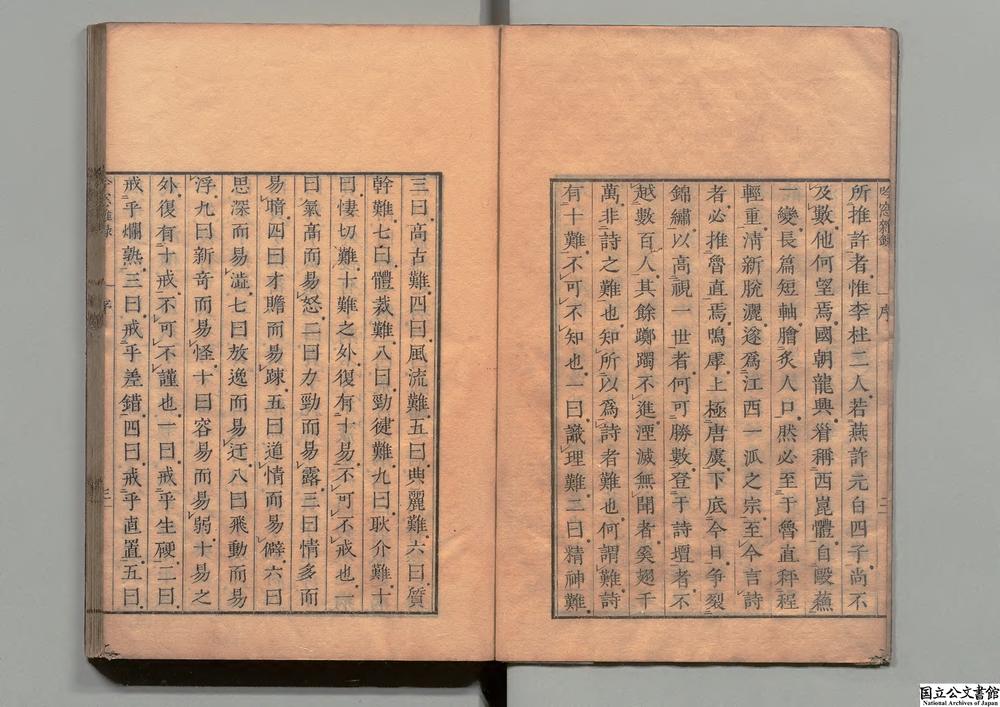 吟窓雜錄 序 二
所推許者惟李杜二人若燕許元白四子尚不
及數他何望焉國朝龍興眷稱西崑體自毆蘓
一變長篇短軸膾炙人口然必至于魯直秤程
輕重淸新脫灑遂爲江西一派之宗至今言詩
者必推魯直焉嗚虖上極唐虞下底今日爭裂
錦繡以高視一世者何可勝數登于詩壇者不
越數百人其餘躑躅不進湮滅無聞者奚翅千
萬非詩之難也知所以爲詩者難也何謂難詩
有十難不可不知也一曰識理難二曰精神難
三曰高古難四曰風流難五曰典麗難六曰質
幹難七曰體裁難八曰勁健難九曰耿介難十
曰悽切難十難之外復有十易不可不戒也一
曰氣高而易怒二曰力勁而易露三曰情多而
易暗四曰才贍而易疎五曰道情而易僻六曰
思深而易澁七曰放逸而易迂八曰飛動而易
浮九曰新竒而易怪十曰容易而易弱十易之
外復有十戒不可不謹也一曰戒乎生硬二曰
戒乎爛熟三曰戒乎差錯四曰戒乎直置五曰
序 三
国立公文書館
National Archives of Japan